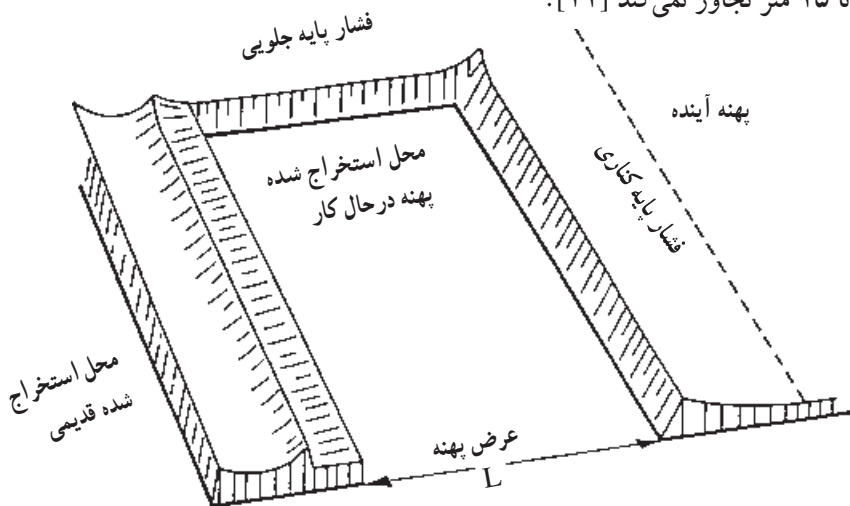 تا ۱۵ متر تجاوز نمی‌کند [۱۱].
فشار پایه جلویی
پهنه آینده
محل استخراج شده
پهنه درحال کار
فشار پایه کناری
محل استخراج
شده قدیمی
عرض پهنه
L